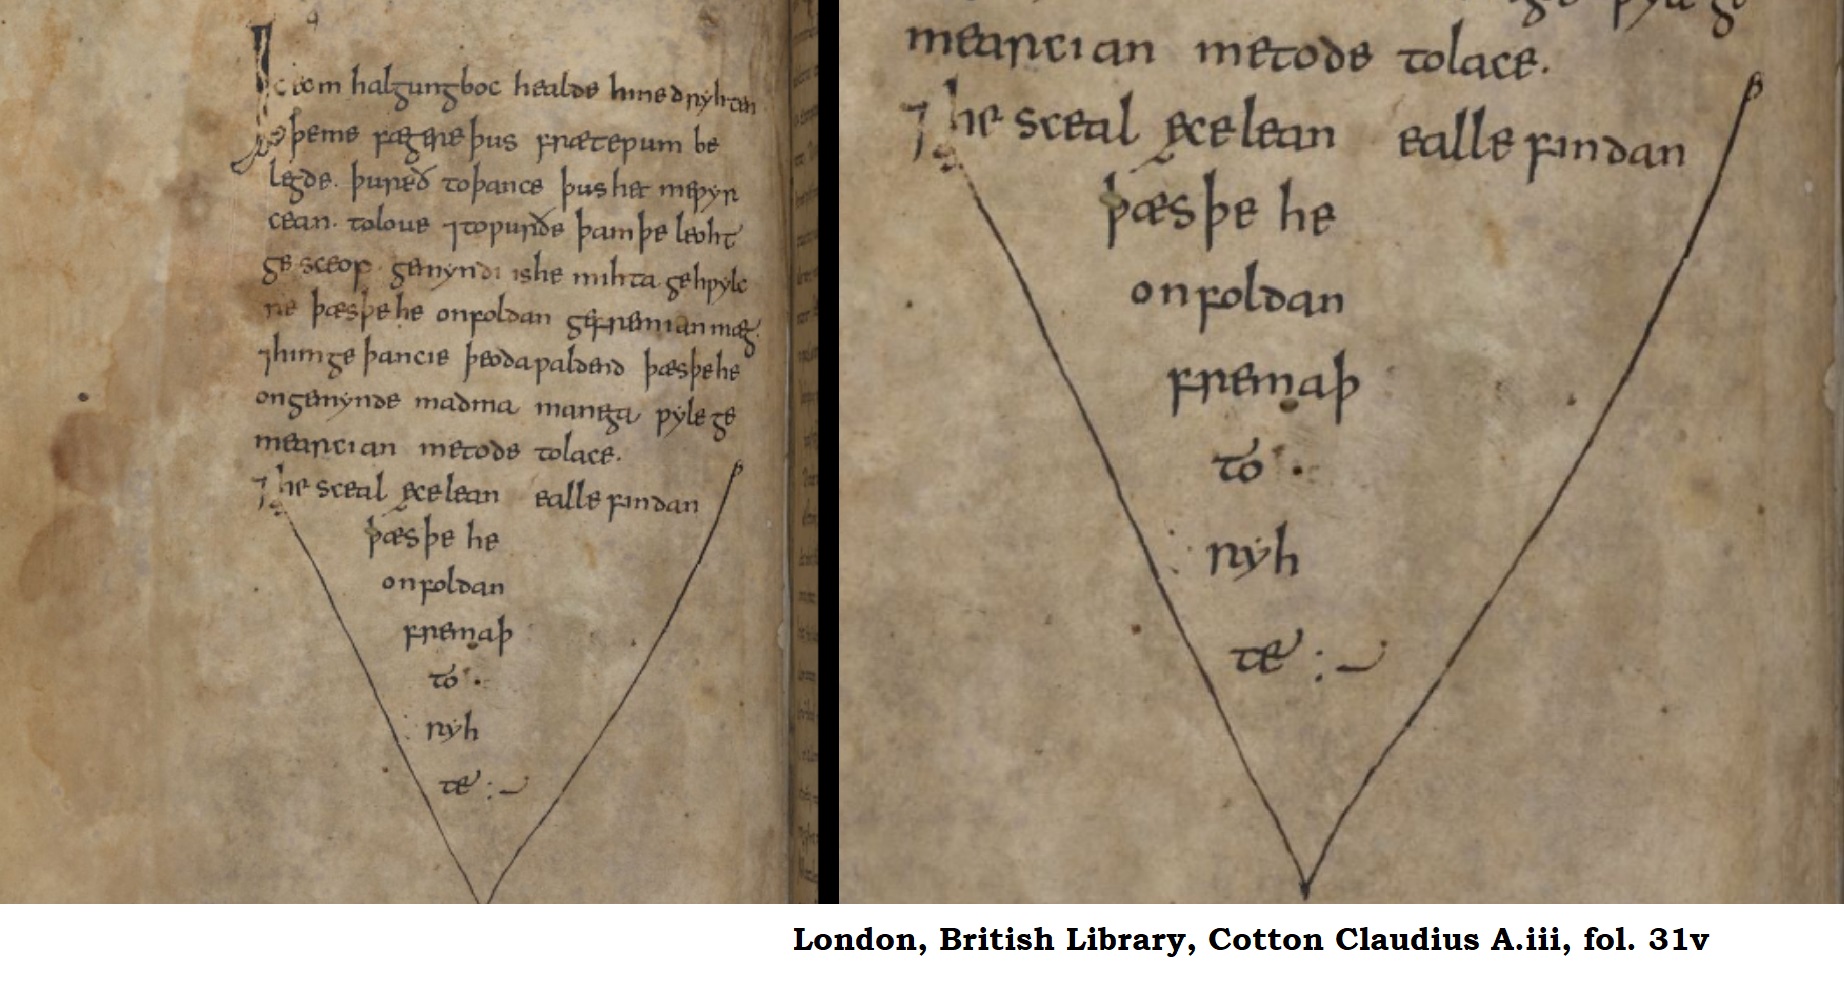 Ic eom halgungboc healde hine dryhten
þeme fægere þus fræteƿum be
legde. þureð toþance þus het meƿyr
cean. toloue ⁊toƿurðe þam þe leoht
ge sceop. gemyndi is he mihta gehƿylc
re þæs þe he onfoldan gefremian mæg.
⁊him ge þancie þeoda ƿaldend þæs þe he
ongemynde madma manega ƿyle ge
mearcian metode tolace.
⁊he sceal ece lean ealle findan
þæs þe he
onfoldan
fremaþ
to
ryh
te :
mearcian metode tolace.
⁊he sceal ece lean ealle findan
þæs þe he
onfoldan
fremaþ
to
ryh
te :
London, British Library, Cotton Claudius A.iii, fol. 31v